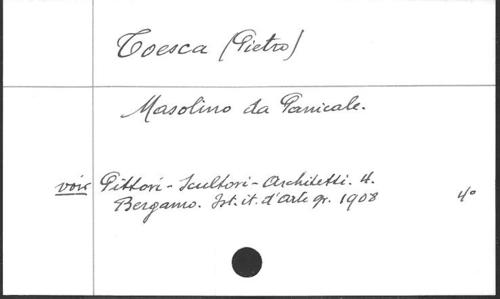 Toesca (Pietro)
Masolino da Panicale.
voir Pittori - Scultori - Architetti. 4.
Bergamo. Ist. it. d'Arte gr. 1908 4°